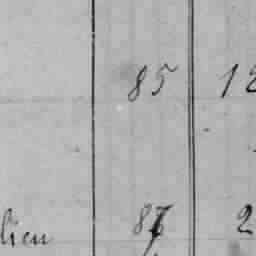 85 12
lien 87 2